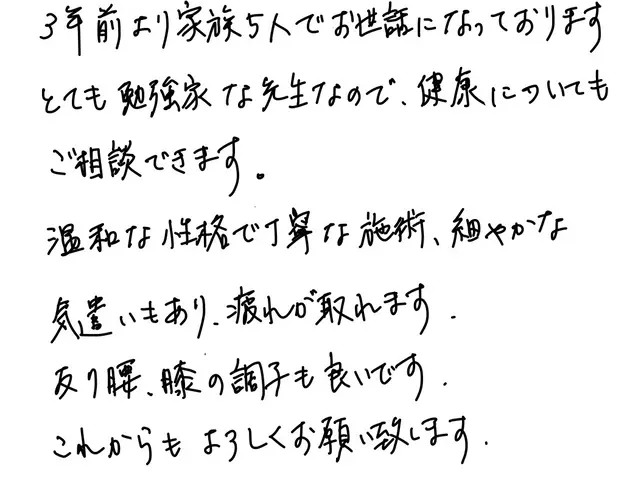 3年前より家族5人でお世話になっております
とても勉強家な先生なので、健康についても
ご相談できます。
温和な性格で丁寧な施術、細やかな
気遣いもあり、疲れが取れます.
反り腰、膝の調子も良いです.
これからもよろしくお願い致します.